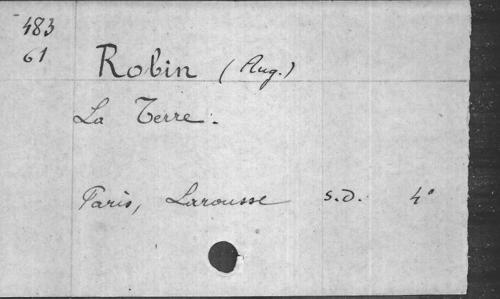 483
61
Robin (Aug.)
La Terre.
Paris, Larousse s.d. 4°